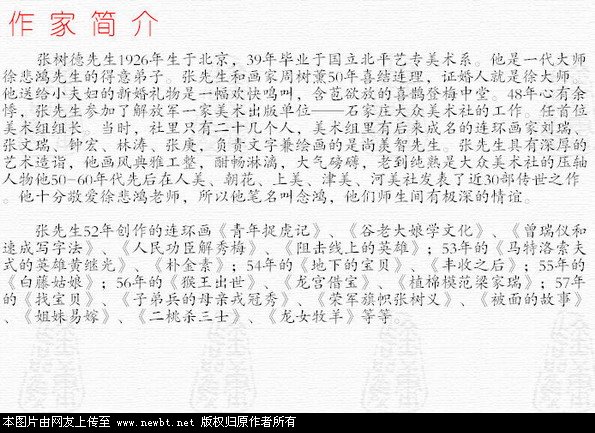 作家简介
张树德先生1926年生于北京，39年毕业于国立北平艺专美术系。他是一代大师
徐悲鸿先生的得意弟子。张先生和画家周树薰50年喜结连理，证婚人就是徐大师。
他送给小夫妇的新婚礼物是一幅欢快鸣叫，含苞欲放的喜鹊登梅中堂。48年心有余
悸，张先生参加了解放军一家美术出版单位——石家庄大众美术社的工作。任首位
美术组组长。当时，社里只有二十几个人，美术组里有后来成名的连环画家刘瑞、
张文瑞、钟宏、林涛、张庚，负责文字兼绘画的是尚羡智先生。张先生具有深厚的
艺术造诣，他画风典雅工整，酣畅淋漓，大气磅礴，老到纯熟是大众美术社的压轴
人物他50-60年代先后在人美、朝花、上美、津美、河美社发表了近30部传世之作
。他十分敬爱徐悲鸿老师，所以他笔名叫念鸿，他们师生间有极深的情谊。
张先生52年创作的连环画《青年捉虎记》、《谷老大娘学文化》、《曾瑞仪和
速成写字法》、《人民功臣解秀梅》、《阻击线上的英雄》；53年的《马特洛索夫
式的英雄黄继光》、《朴金素》；54年的《地下的宝贝》、《丰收之后》；55年的
《白藤姑娘》；56年的《猴王出世》、《龙宫借宝》、《植棉模范梁家瑞》；57年
的《找宝贝》、《子弟兵的母亲戎冠秀》、《荣军旗帜张树义》、《被面的故事》
、《姐妹易嫁》、《二桃杀三士》、《龙女牧羊》等等
本图片由网友上传至 www.newbt.net 版权归原作者所有